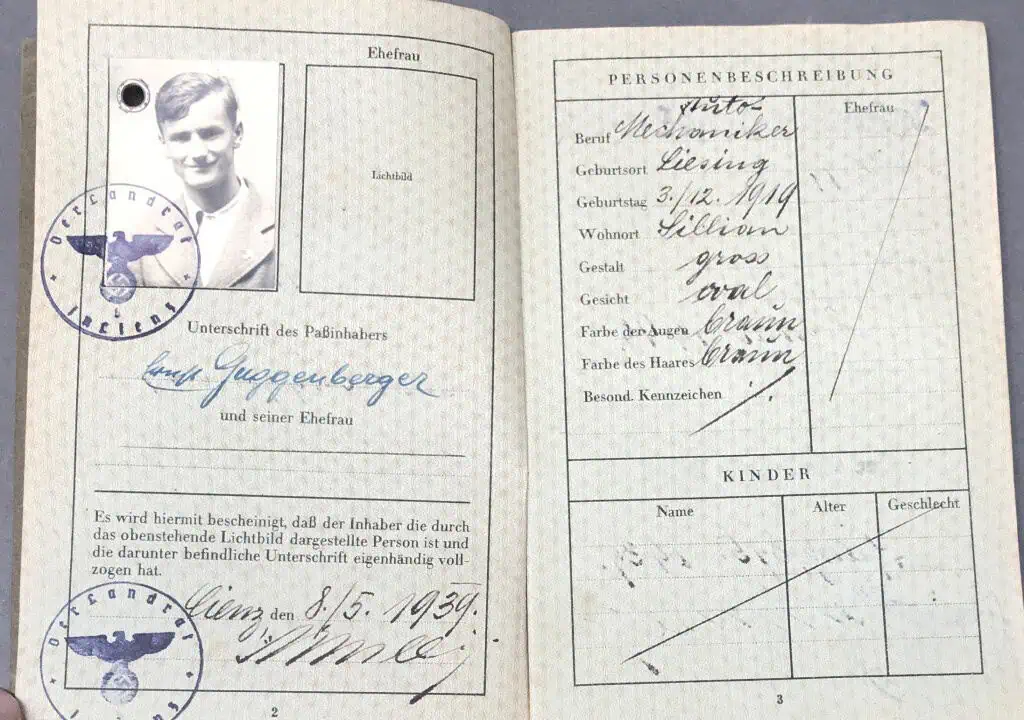 Ehefrau
Lichtbild
Der Landrat
Lienz
Unterschrift des Paßinhabers
Ernst Guggenberger
und seiner Ehefrau
Es wird hiermit bescheinigt, daß der Inhaber die durch
das obenstehende Lichtbild dargestellte Person ist und
die darunter befindliche Unterschrift eigenhändig voll-
zogen hat.
Lienz, den 8./5. 1939.
Der Landrat
2
PERSONENBESCHREIBUNG
Ehefrau
Auto-
Beruf Mechaniker
Geburtsort Liesing
Geburtstag 3./12. 1919
Wohnort Sillian
Gestalt gross
Gesicht oval
Farbe der Augen braun
Farbe des Haares braun
Besond. Kennzeichen ./.
KINDER
Name Alter Geschlecht
3